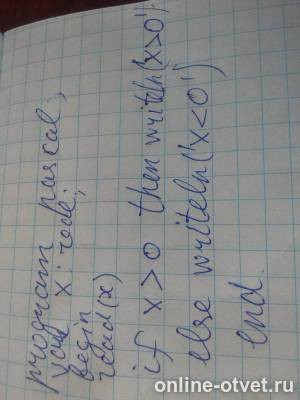 program pascal;
var x: rode;
begin
read(x)
if x>0 then writeln('x>0')
else writeln('x<0')
end.
online-otvet.ru